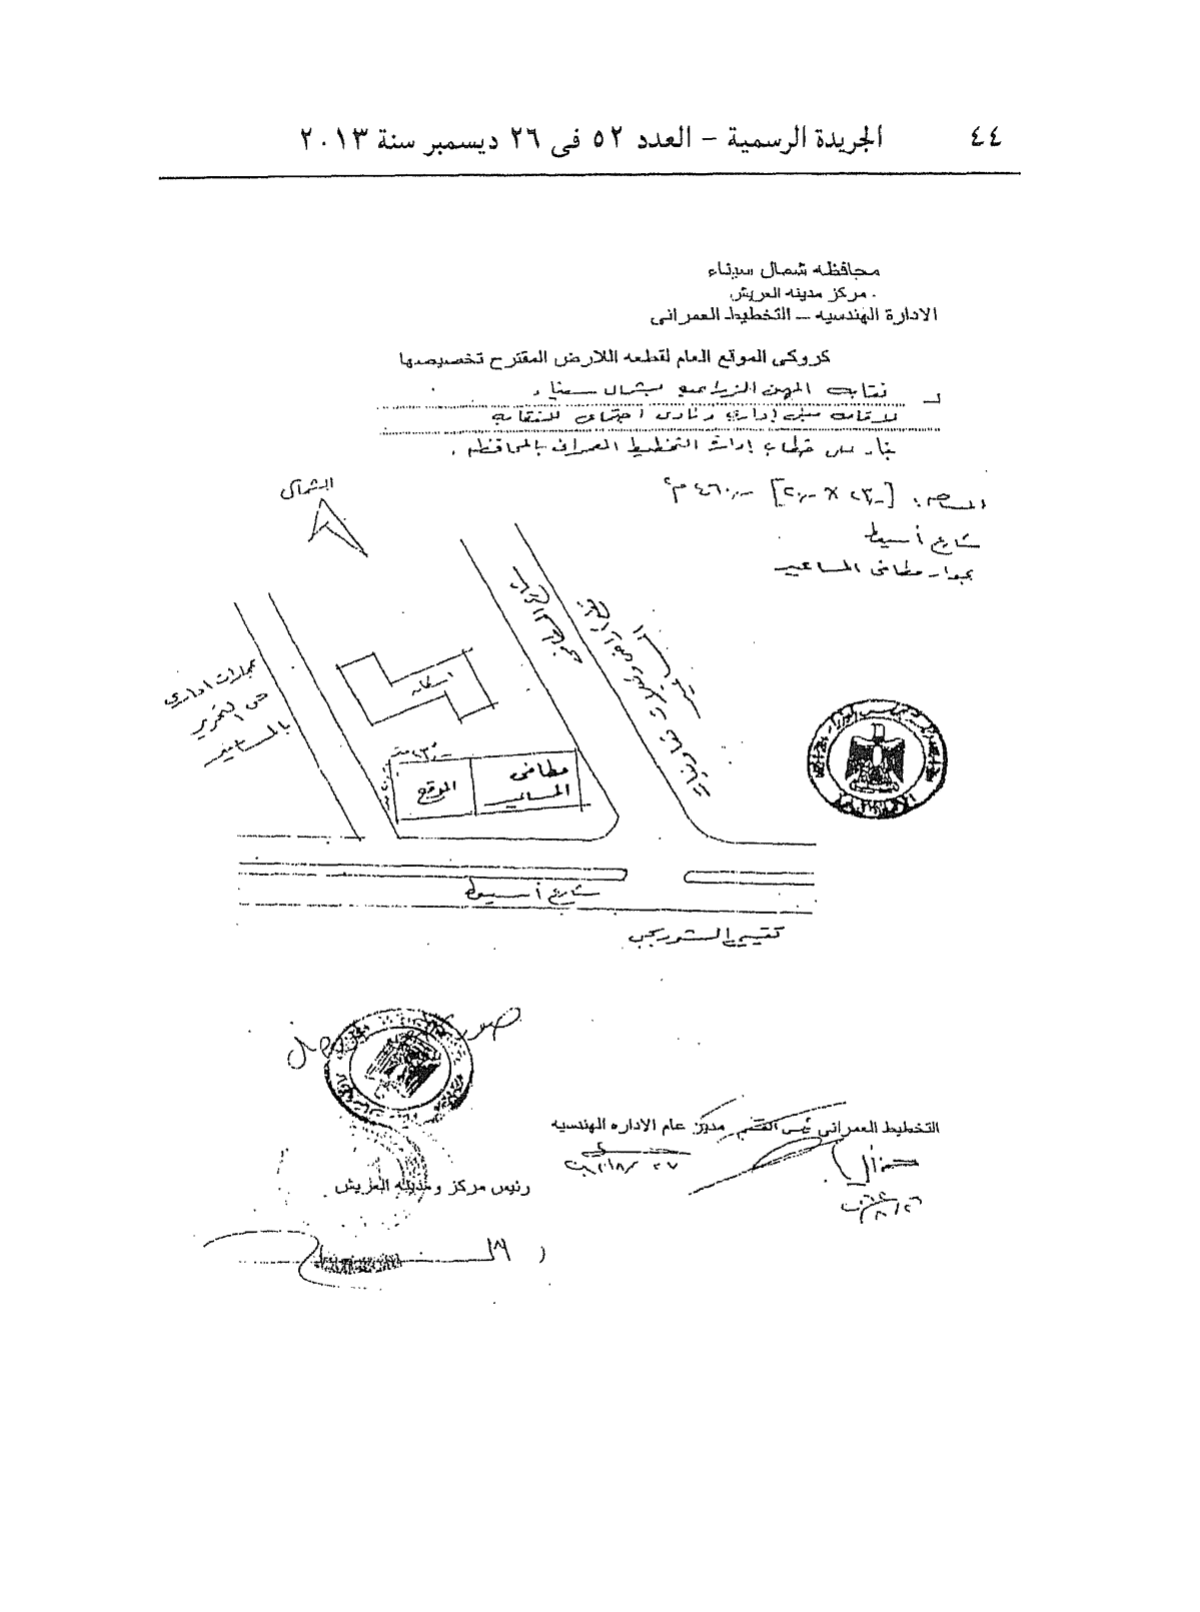 ٤٤ الجريدة الرسمية – العدد ٥٢ فى ٢٦ ديسمبر سنة ٢٠١٣
محافظه شمال سيناء
مركز مدينه العريش
الادارة الهندسيه – التخطيط العمرانى
كروكى الموقع العام لقطعه اللارض المقترح تخصيصها
لـ نقابه المهن الزراعيه بشمال سيناء
لاقامه مبنى إدارى ونادى اجتماعى للنقابه
بناء على خطاب إدارة التخطيط العمرانى بالمحافظه .
المساحه : [٢٣٫٠٠ × ٢٠٫٠٠] ٤٦٠٫٠٠ م٢
شارع أسيوط
بجوار مطافى المساعيد
الشمال
عمارات ادارى
حى التحرير
بالمساعيد
اسكان
مطافى
المساعيد
الموقع
شارع أسيوط
تقسيم
التخطيط العمرانى رئيس القسم مدير عام الاداره الهندسيه
رئيس مركز ومدينه العريش